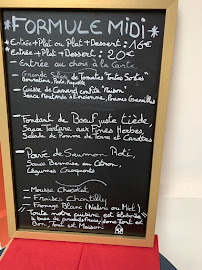 * FORMULE MIDI *
* Entrée + Plat ou Plat + Dessert : 16€
Entrée + Plat + Dessert : 20€
- Entrée au choix à la Carte
- Grande Salade de Tomates "Toutes Sortes"
Burratina, Pesto, Roquette
- Cuisse de Canard confite "Maison"
Sauce Moutarde à l'ancienne, Pommes Grenailles
- Fondant de Boeuf juste tiède,
Sauce Tartare aux Fines Herbes,
Salade de Pomme de Terre et Carottes
- Pavé de Saumon Rôti,
Sauce Bernaise au Citron,
Légumes Croquants
- Mousse Chocolat
- Fraises Chantilly
- Fromage Blanc (Nature ou Miel)
Toute notre cuisine est élaborée
à base de produits frais, donc Tout est
Bon, Tout est Maison